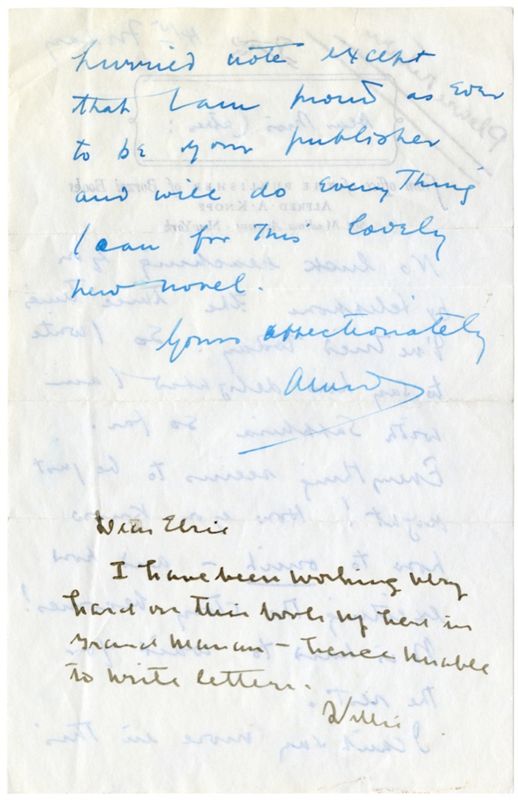 hurried note except
that I am proud as ever
to be your publisher
and will do everything
I can for this lovely
new novel.
Yours affectionately
Alfred
Dear Elsie
I have been working very
hard on this book up here in
Grand Manan – hence unable
to write letters.
Willie